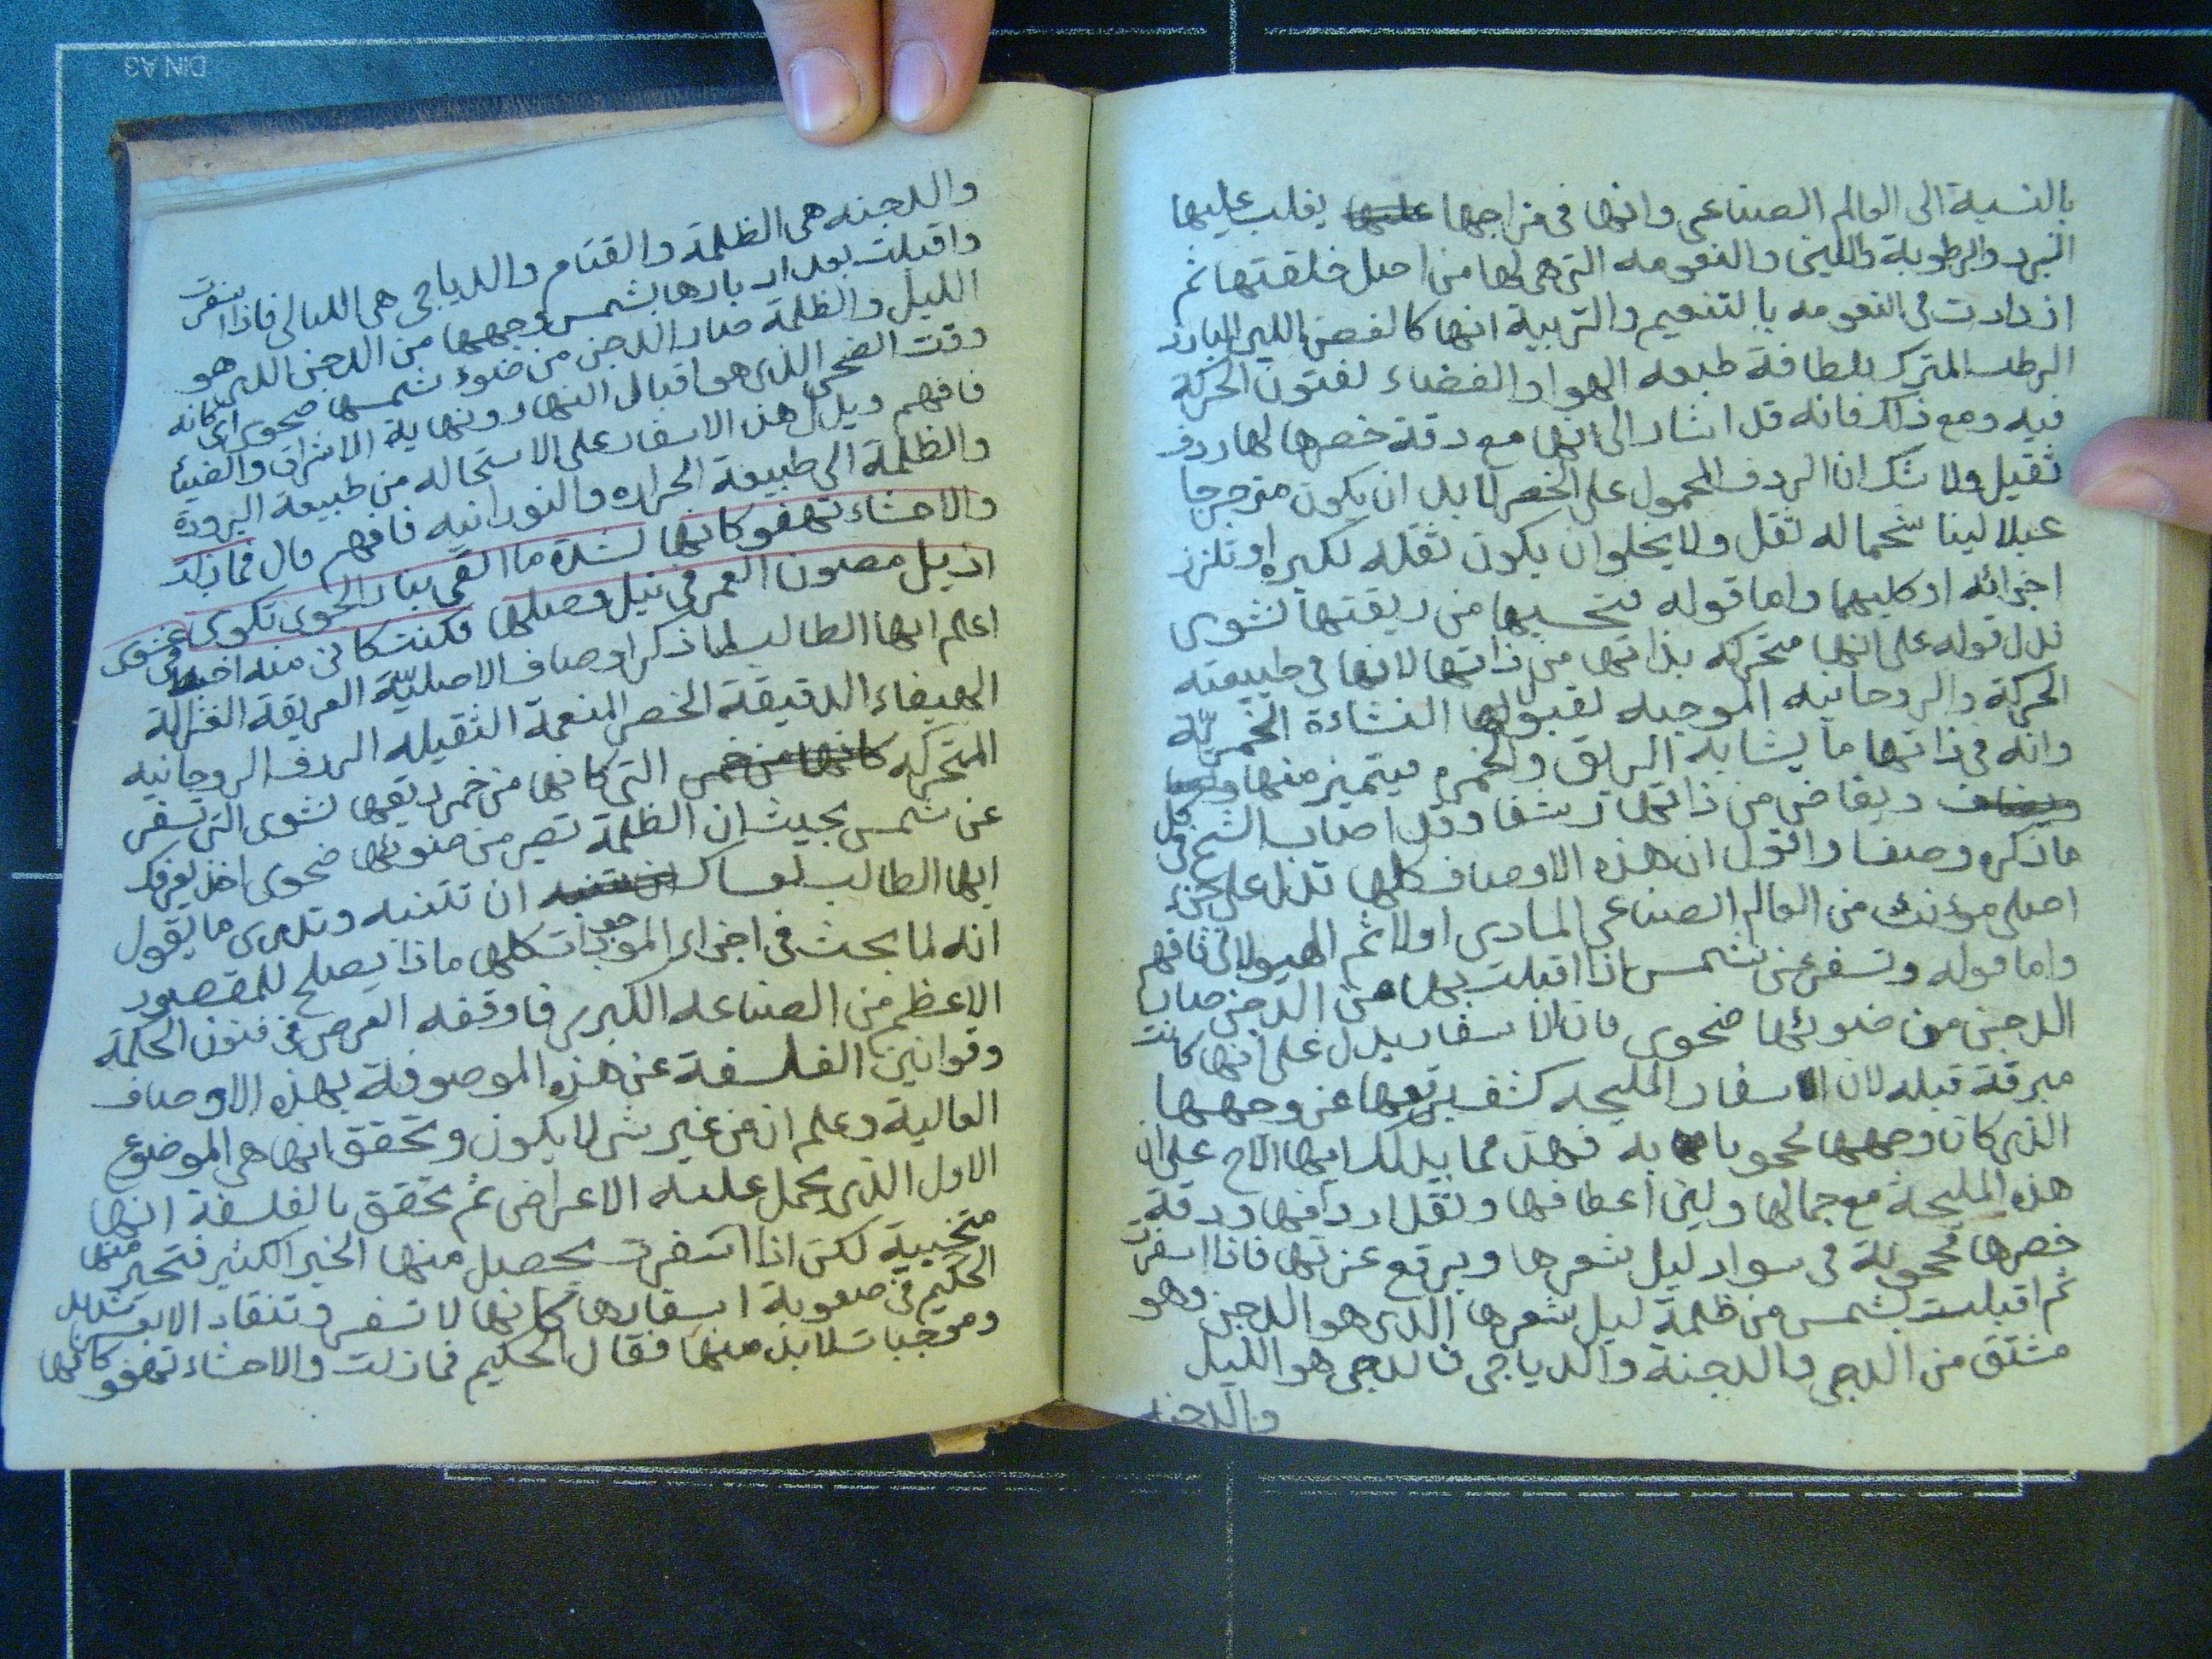 بالنسبة الى العالم الصناعى وانها فى مزاجها عليها يغلب عليها
البرد والرطوبة واللين والنعومه التى هى لها من اصل خلقتها ثم
ازدادت فى النعومه بالتنعيم والتربية انها كالغصن اللين البارد
الرطب المتحرك للطافة طبعه الهوا والفضاء لفتون الحركة
فيه ومع ذلك فانه قد اشار الى انها مع دقة خصرها لها ردف
ثقيل ولا شك ان الردف المحمول على الخصر لابد ان يكون مترجرجا
عبلا لينا شحما له ثقل ولا يخلو ان يكون ثقله لكبره او تلزز
اجزائه او كليهما واما قوله تحسبها من ريقتها نشوى
فدل قوله على انها متحركه بذاتها من ذاتها لانها فى طبيعته
الحركة والروحانيه الموجبه لقبولها النشاءة الخمريّه
وانه فى ذاتها ما يشابه الريق والخمره فيتميز منها
ويفاض من ذاتها رشفا وقد اصاب الشيخ فى كل
ما ذكره وصفا واقول ان هذه الاوصاف كلها تدل على جزء
اصلى مؤنث من العالم الصناعى المادى اولا ثم الهيولانى فافهم
واما قوله وتسفر عن شمس اذا اقبلت بها من الدجن صار
الدجن من ضوئها ضحوى فان الاسفار يدل على انها كانت
مبرقة قبله لان الاسفار المليحه كشف برقعها عن وجهها
الذى كان وجهها محجوبا به فهذ مما يدلك ايها الاخ على ان
هذه المليحة مع جمالها ولين اعطافها وثقل اردافها ودقة
خصرها محجوبة فى سواد ليل شعرها وبرقع عزتها فاذا اسفرت
ثم اقبلت بشمس من ظلمة ليل شعرها الذى هو الدجن وهو
مشتق من الدجى والدجنة والدياجى فالدجى هو الليل
والدجنه
والدجنه هى الظلمة والقتام والدياجى هى الليالى فاذا اسفرت
واقبلت بعد ادبارها بشمس وجهها من الدجن الذى هو
الليل والظلمة صار الدجن من ضوء شمسها ضحوى اى كانه
وقت الضحى الذى هو اقبال النهار ونهاية الاشراق والضياء
فافهم ويدل هذا الاسفار على الاستحاله من طبيعة البرودة
والظلمة الى طبيعة الحراره والنورانيه فافهم قال فما زلت
والاحشاء تهفو كانها لشدة ما القى بنار الجوى تكوى
اذيل مصون العمر فى نيل وصلها فكنت كانى منه اخبط فى عشوى
اعلم ايها الطالب لما ذكر اوصاف الاصليّة العريقة الغزالة
الهيفاء الدقيقة الخصر المنعمة الثقيله الردف الروحانيه
المتحركه كانها من خمر التى كانها من خمر ريقها نشوى التى تسفر
عن شمس بحيث ان الظلمة تصير من ضوئها ضحوى اخذ يعرفك
ايها الطالب لعساك ان تتنبه ان تتنبه وتدرى ما يقول
انه لما بحث فى اجزاء الموجودات كلها ماذا يصلح للمقصود
الاعظم من الصناعه الكبرى فاوقفه الغرض فى فنون الحكمة
وقوانين الفلسفة عن هذه الموصوفة بهذه الاوصاف
العالية وعلم ان من غير شى لا يكون وتحقق انها هى الموضوع
الاول الذى يحمل عليه الاعراض ثم تحقق بالفلسفة انها
متخبية لكن اذا اسفرت يحصل منها الخير الكثير فتحير منها
الحكيم فى صعوبة اسفارها كانها لا تسفر وتنقاد الا
وموجبات لابد منها فقال الحكيم فما زلت والاحشاء تهفو كانها